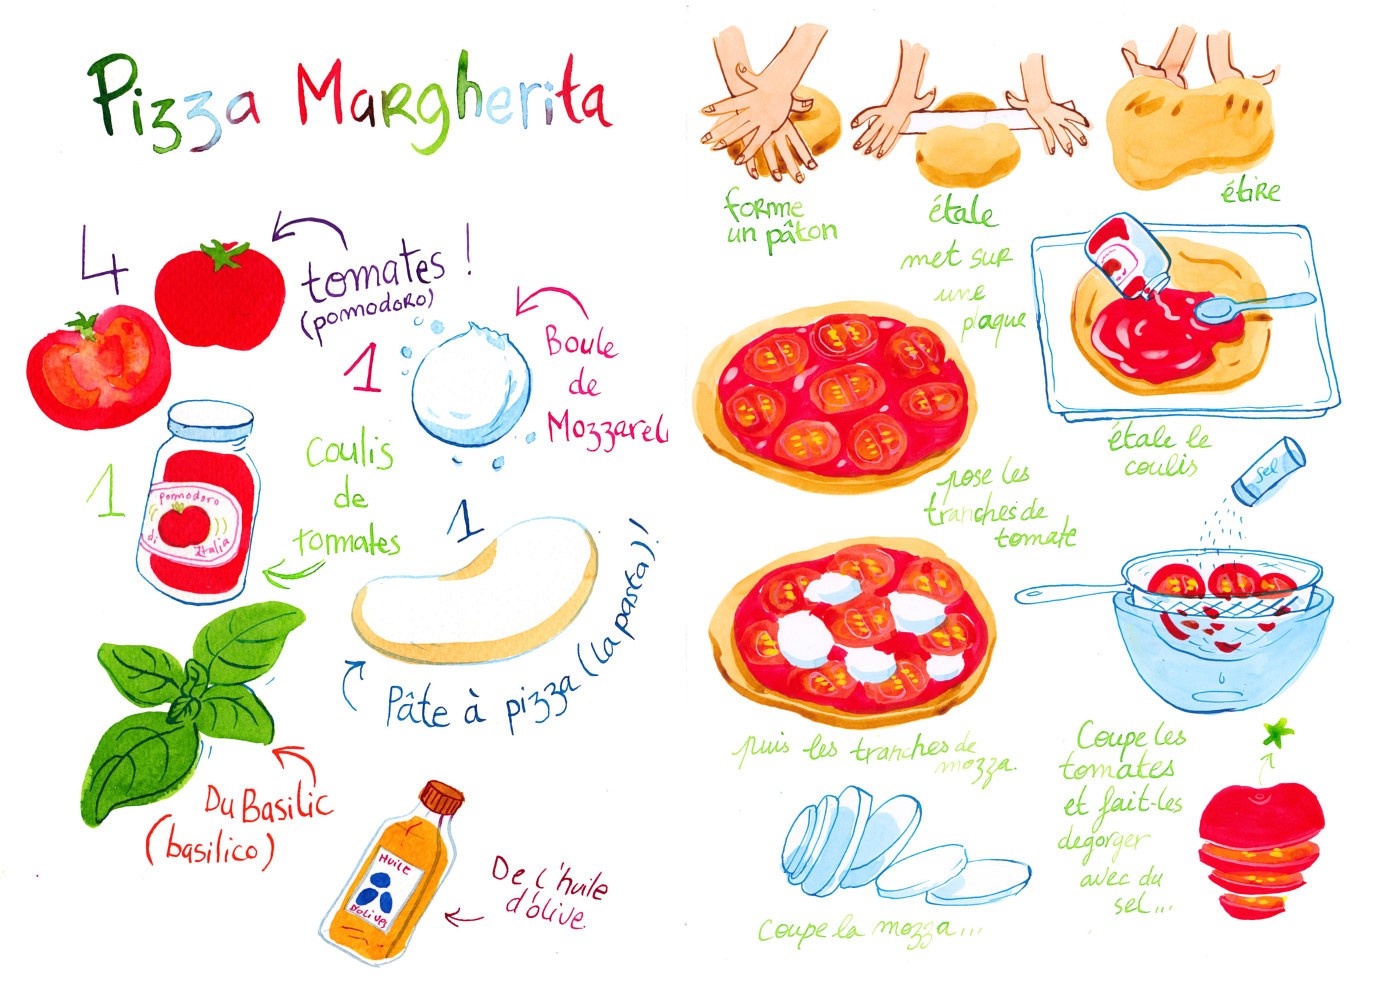 Pizza Margherita
4
tomates !
(pomodoro)
1
Boule
de
Mozzarell
1
Coulis
de
tomates
pomodoro
di Italia
1
Pâte à pizza (la pasta)!
Du Basilic
(basilico)
HuiLE
D'oLiVES
De l'huile
d'olive.
forme
un pâton
étale
étire
met sur
une
plaque
étale le
coulis
pose les
tranches de
tomate
sel
puis les tranches de
mozza.
Coupe les
tomates
et fait-les
degorger
avec du
sel...
coupe la mozza...